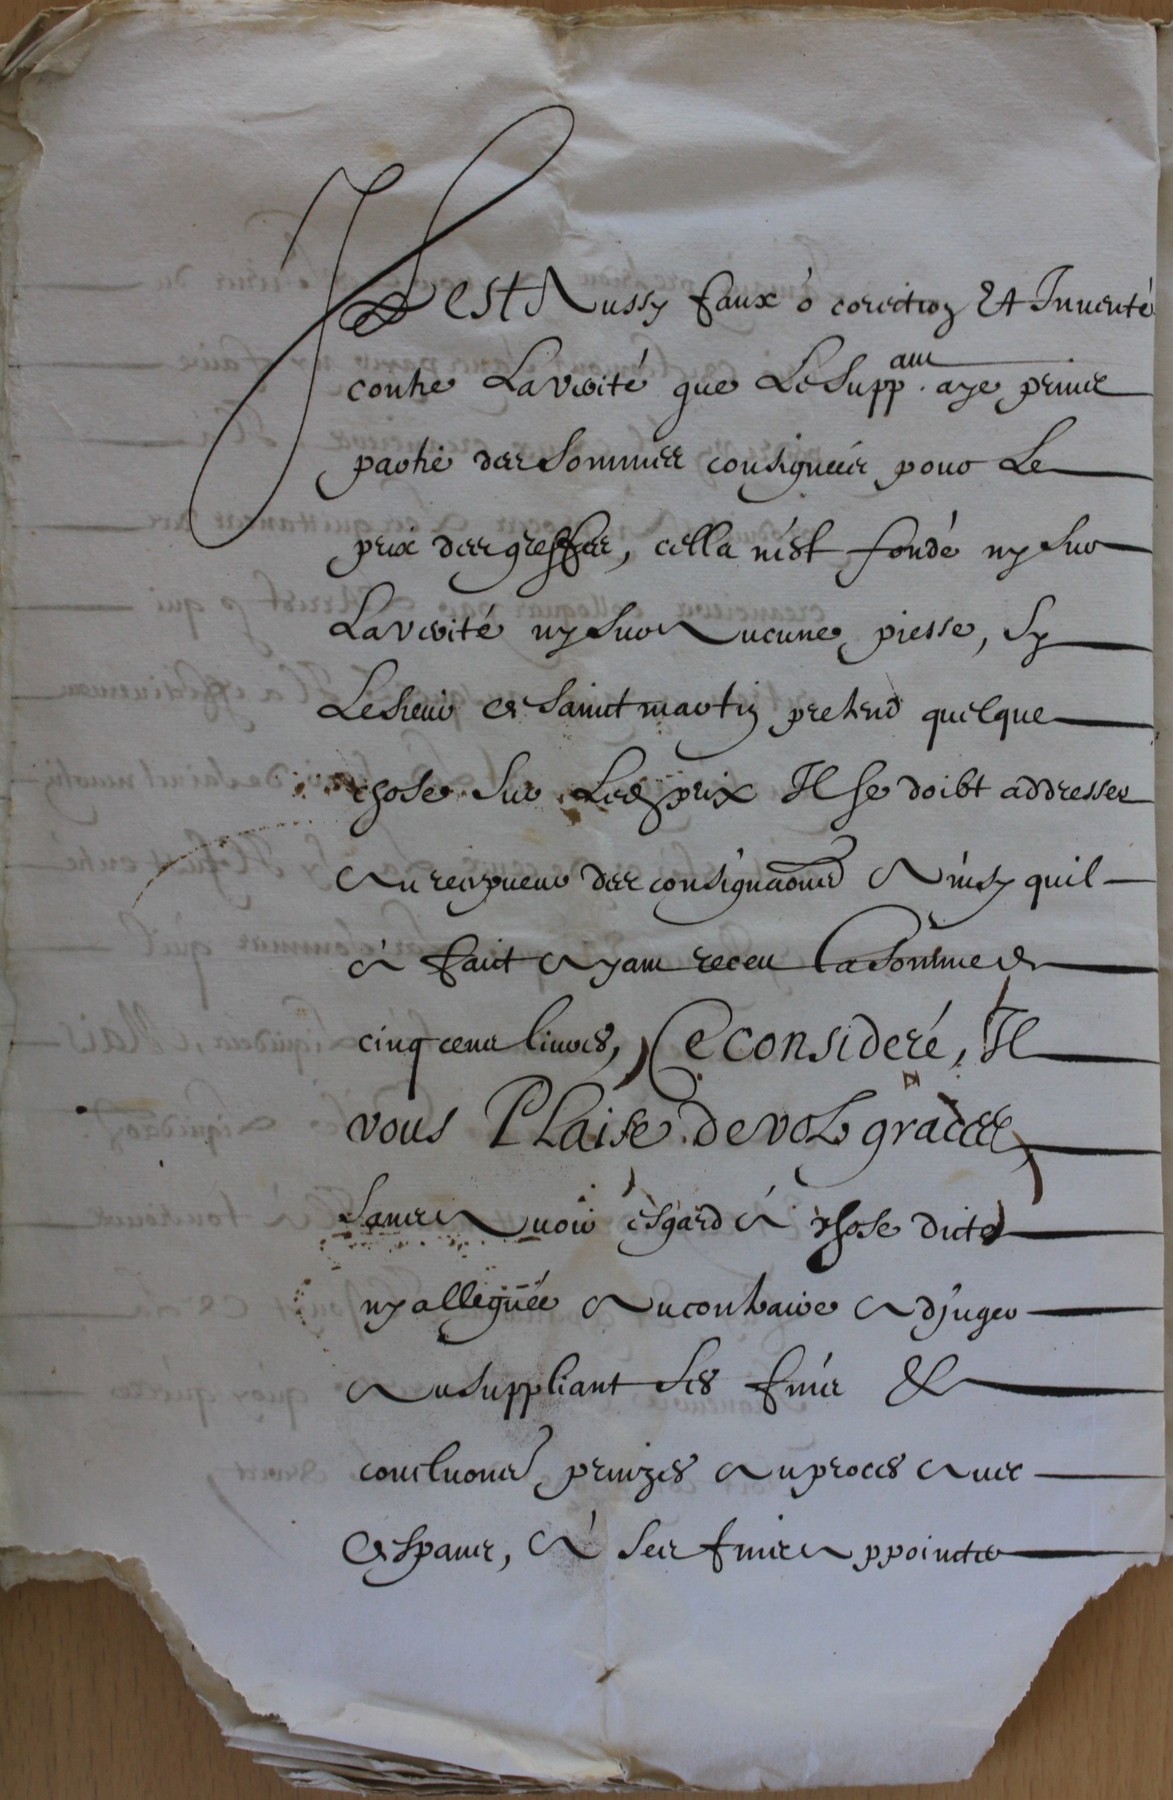 Il est Aussy faux ò corection Et Inventé
contre La verité que Le Supp.ant aye prinse
partie des sommes consignées pour Le
prix des greffes, cella n'est fondé ny sur
La verité ny sur Aucune piesse, Sy
Le sieur de Sainct martin pretend quelque
chose sur Led. prix Il se doibt addresser
Au recepveur des consignaõns Ainsy quil
A faict Ayant receu La somme de
cinq cens livres, Ce consideré, Il
vous Plaise de voz graces
Sans Avoir esgard A chose dicte
ny alleguée Au contraire Adjuger
Au suppliant ses fins &
conclusions prinzes Au proces Avec
despans, A ses fins Appointer